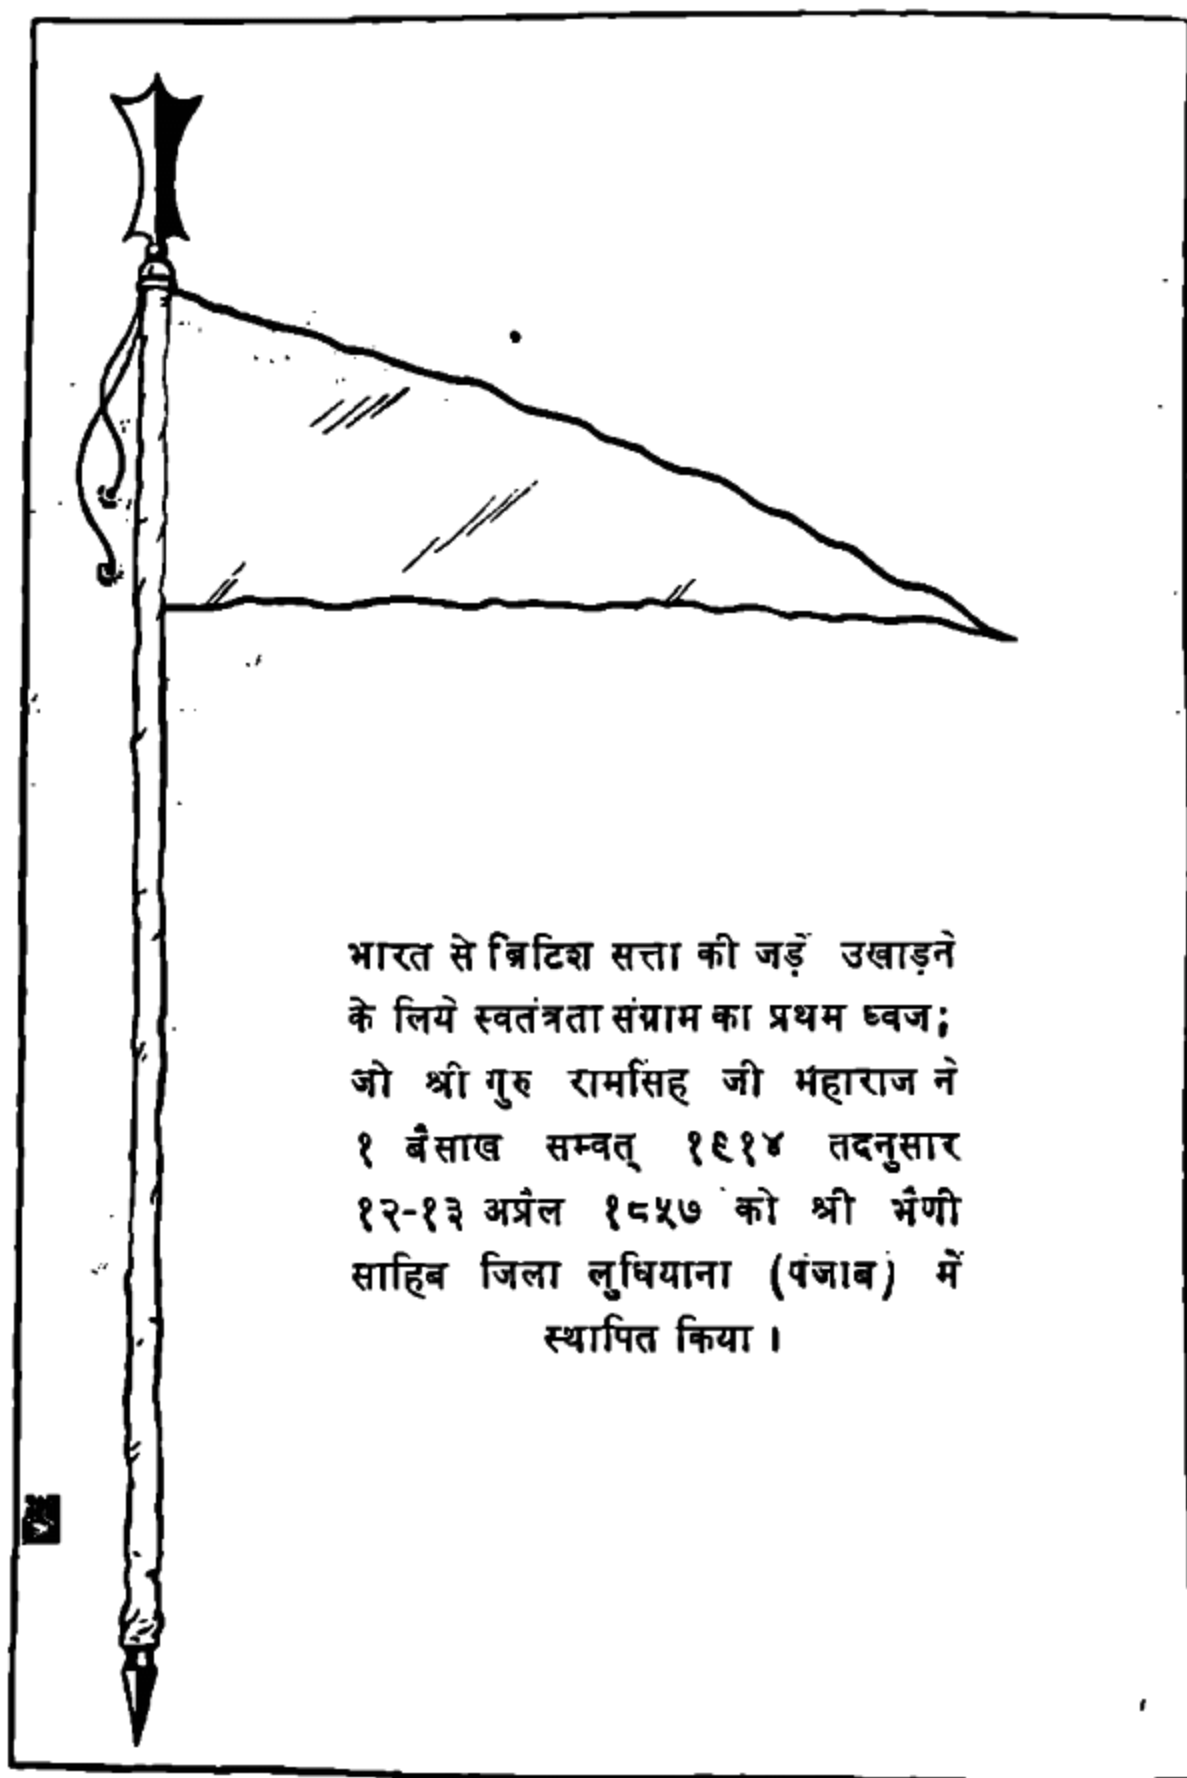 भारत से ब्रिटिश सत्ता की जड़ें उखाड़ने
के लिये स्वतंत्रता संग्राम का प्रथम ध्वज;
जो श्री गुरु रामसिंह जी महाराज ने
१ बैसाख सम्वत् १९१४ तदनुसार
१२-१३ अप्रैल १८५७ को श्री भैणी
साहिब जिला लुधियाना (पंजाब) में
स्थापित किया ।